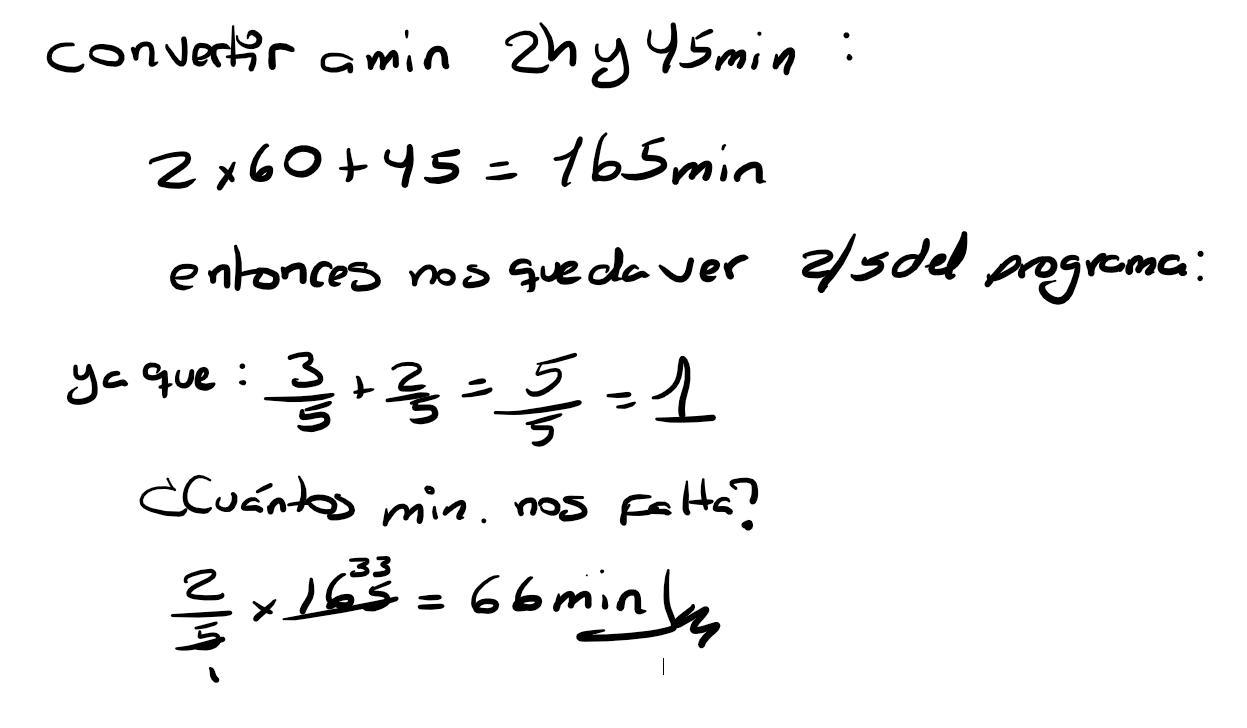 convertir a min 2h y 45min :
2 x 60 + 45 = 165min
entonces nos queda ver 2/5 del programa:
ya que : 3/5 + 2/5 = 5/5 = 1
¿Cuántos min. nos falta?
2/5 x 165 33 = 66min
1